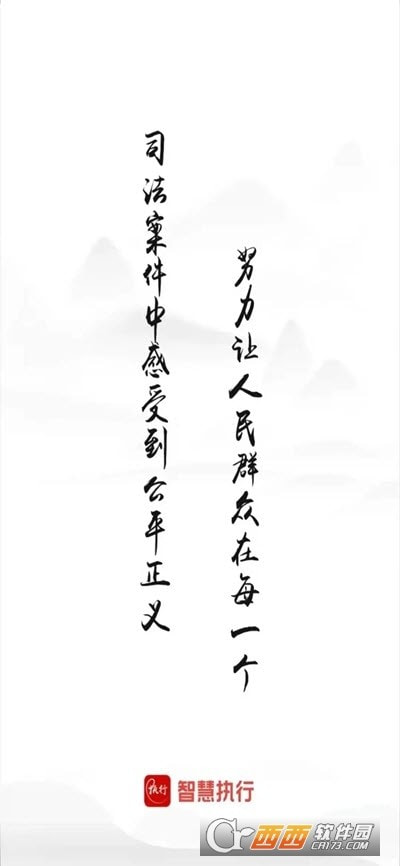 努力让人民群众在每一个
司法案件中感受到公平正义
执行
智慧执行
西西软件园
CR173.COM